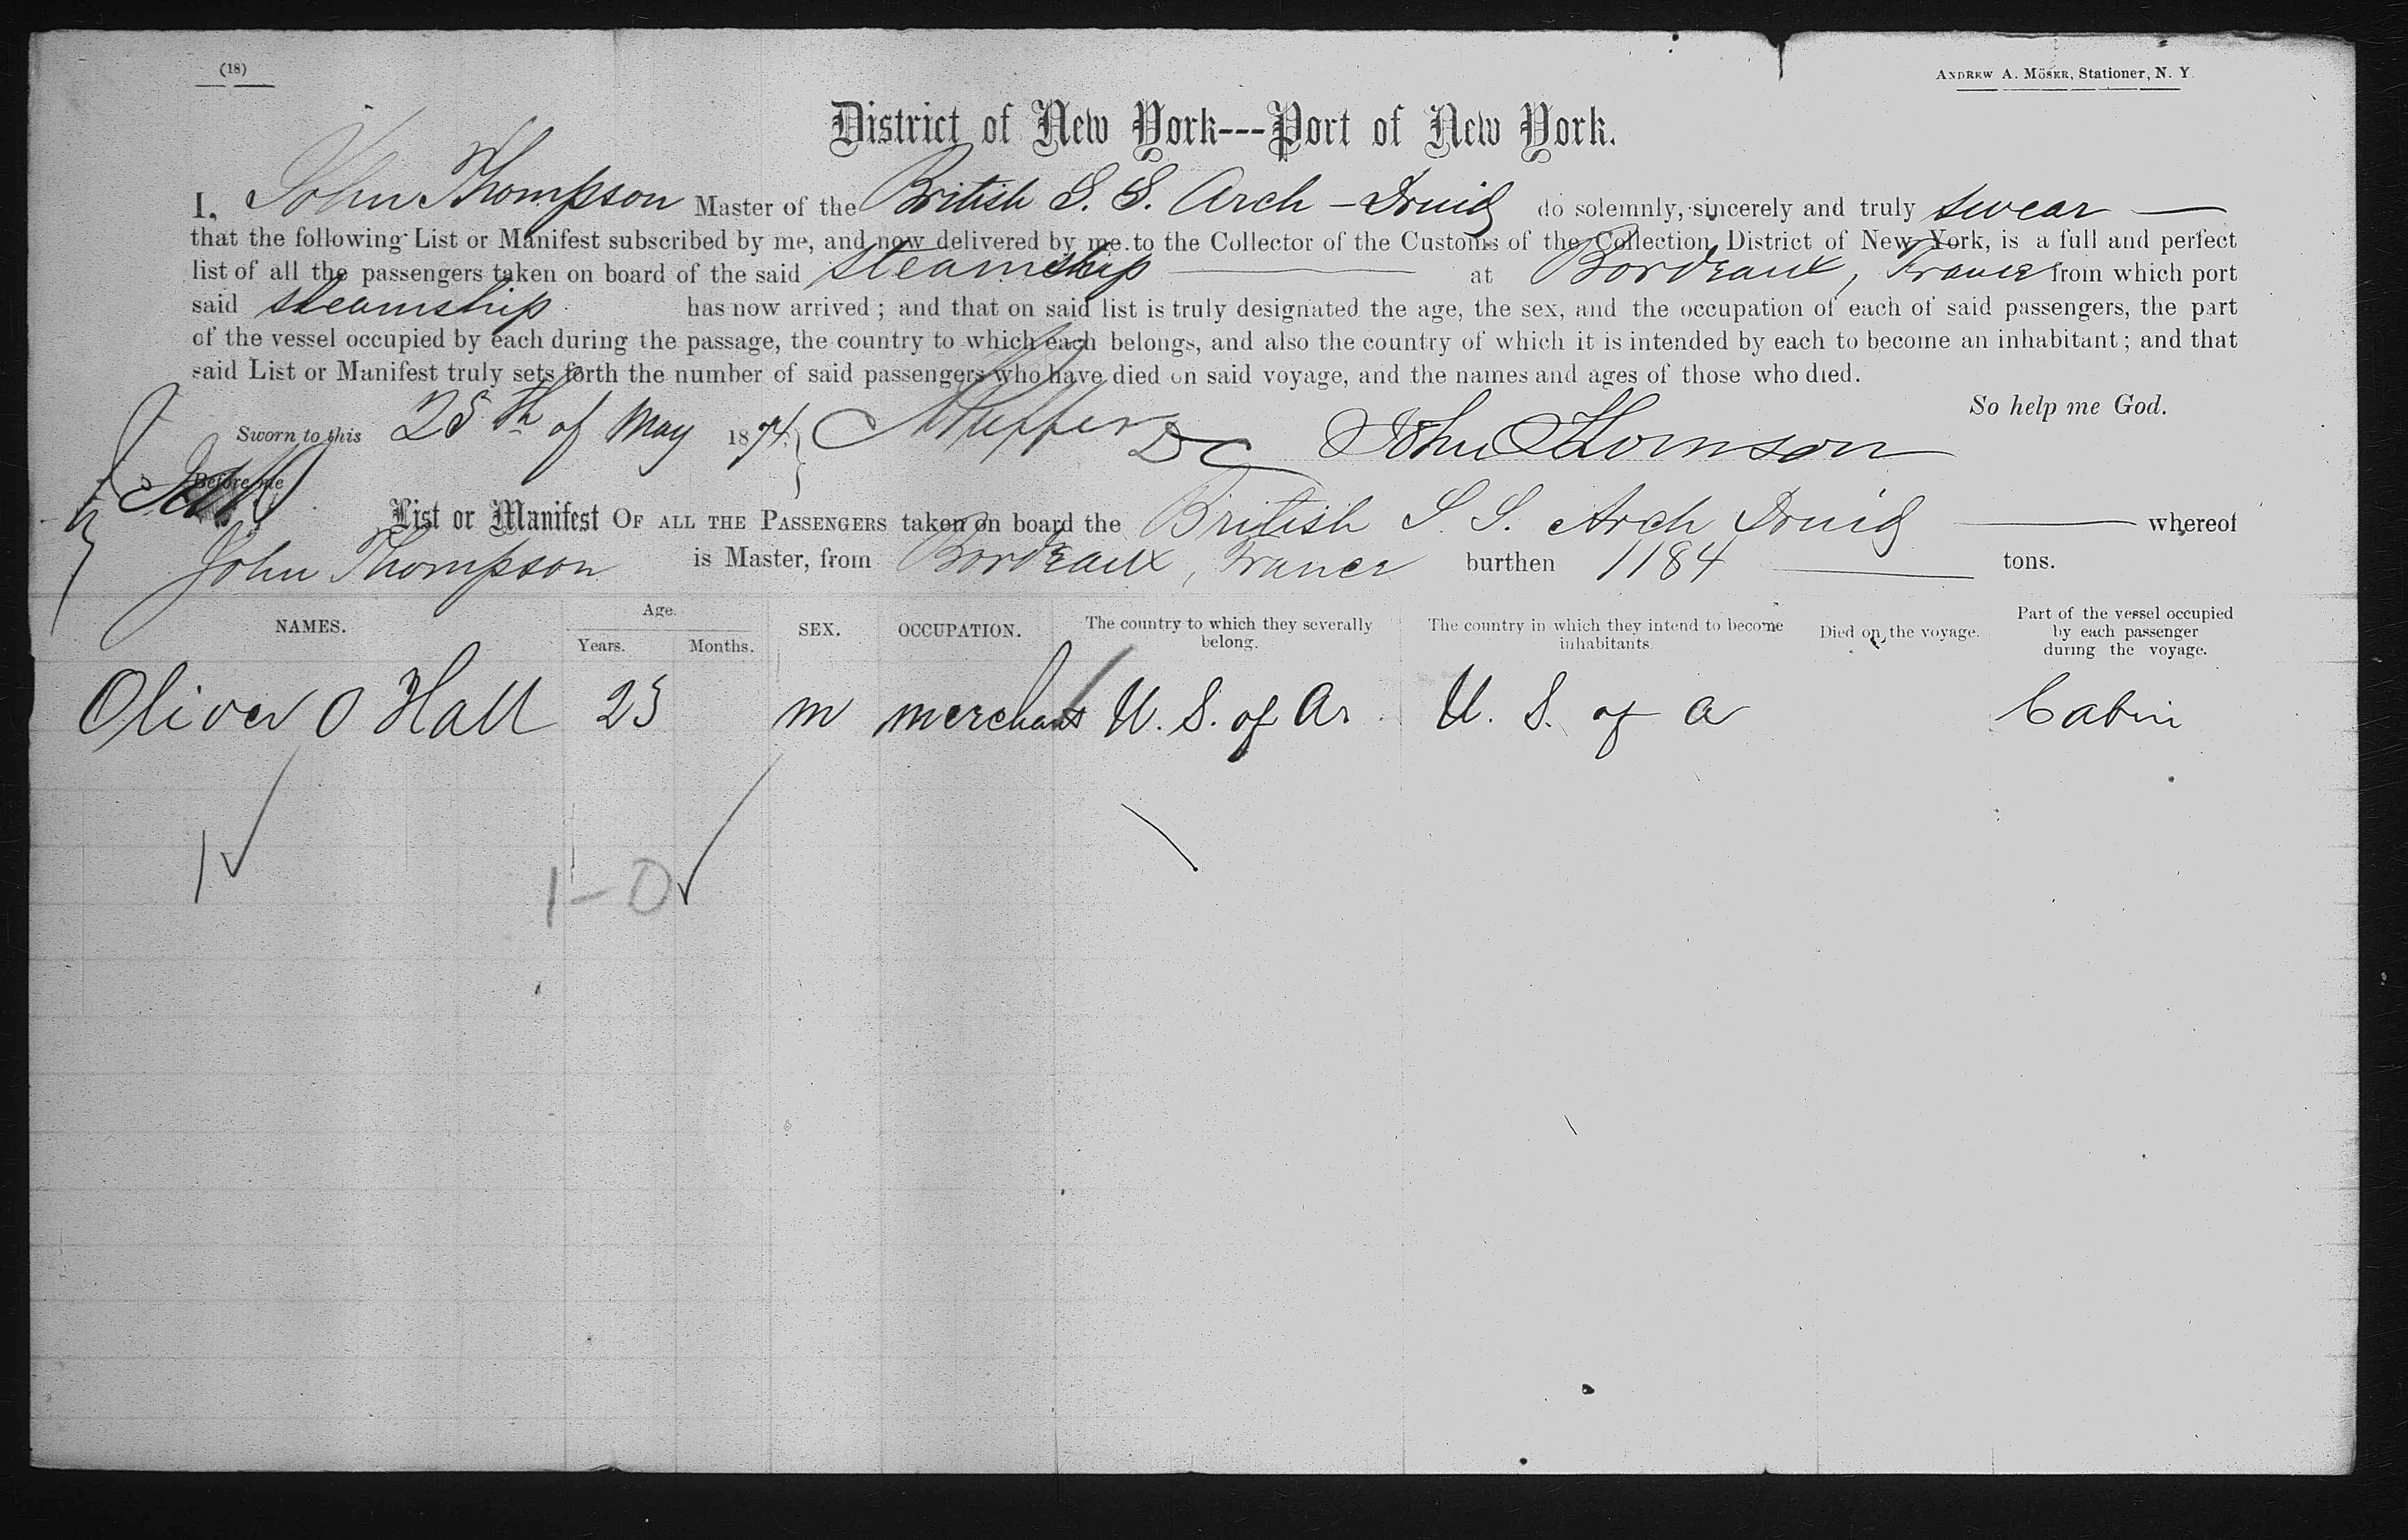 (18)
ANDREW A. MÖSER, Stationer, N. Y.
District of New York---Port of New York.
I, John Thompson Master of the British S. S. Arch-Druid do solemnly, sincerely and truly swear
that the following List or Manifest subscribed by me, and now delivered by me to the Collector of the Customs of the Collection District of New York, is a full and perfect
list of all the passengers taken on board of the said steamship at Bordeaux, France from which port
said steamship has now arrived; and that on said list is truly designated the age, the sex, and the occupation of each of said passengers, the part
of the vessel occupied by each during the passage, the country to which each belongs, and also the country of which it is intended by each to become an inhabitant; and that
said List or Manifest truly sets forth the number of said passengers who have died on said voyage, and the names and ages of those who died.
So help me God.
Sworn to this 25th of May 1874. DC John Thomson
Before me
List or Manifest OF ALL THE PASSENGERS taken on board the British S. S. Arch Druid whereof
John Thompson is Master, from Bordeaux, France burthen 1184 tons.
NAMES. Age. Years. Months. SEX. OCCUPATION. The country to which they severally belong. The country in which they intend to become inhabitants. Died on the voyage. Part of the vessel occupied by each passenger during the voyage.
Oliver O Hall 25 m merchant U. S. of A. U. S. of A Cabin
1✓
1-0✓